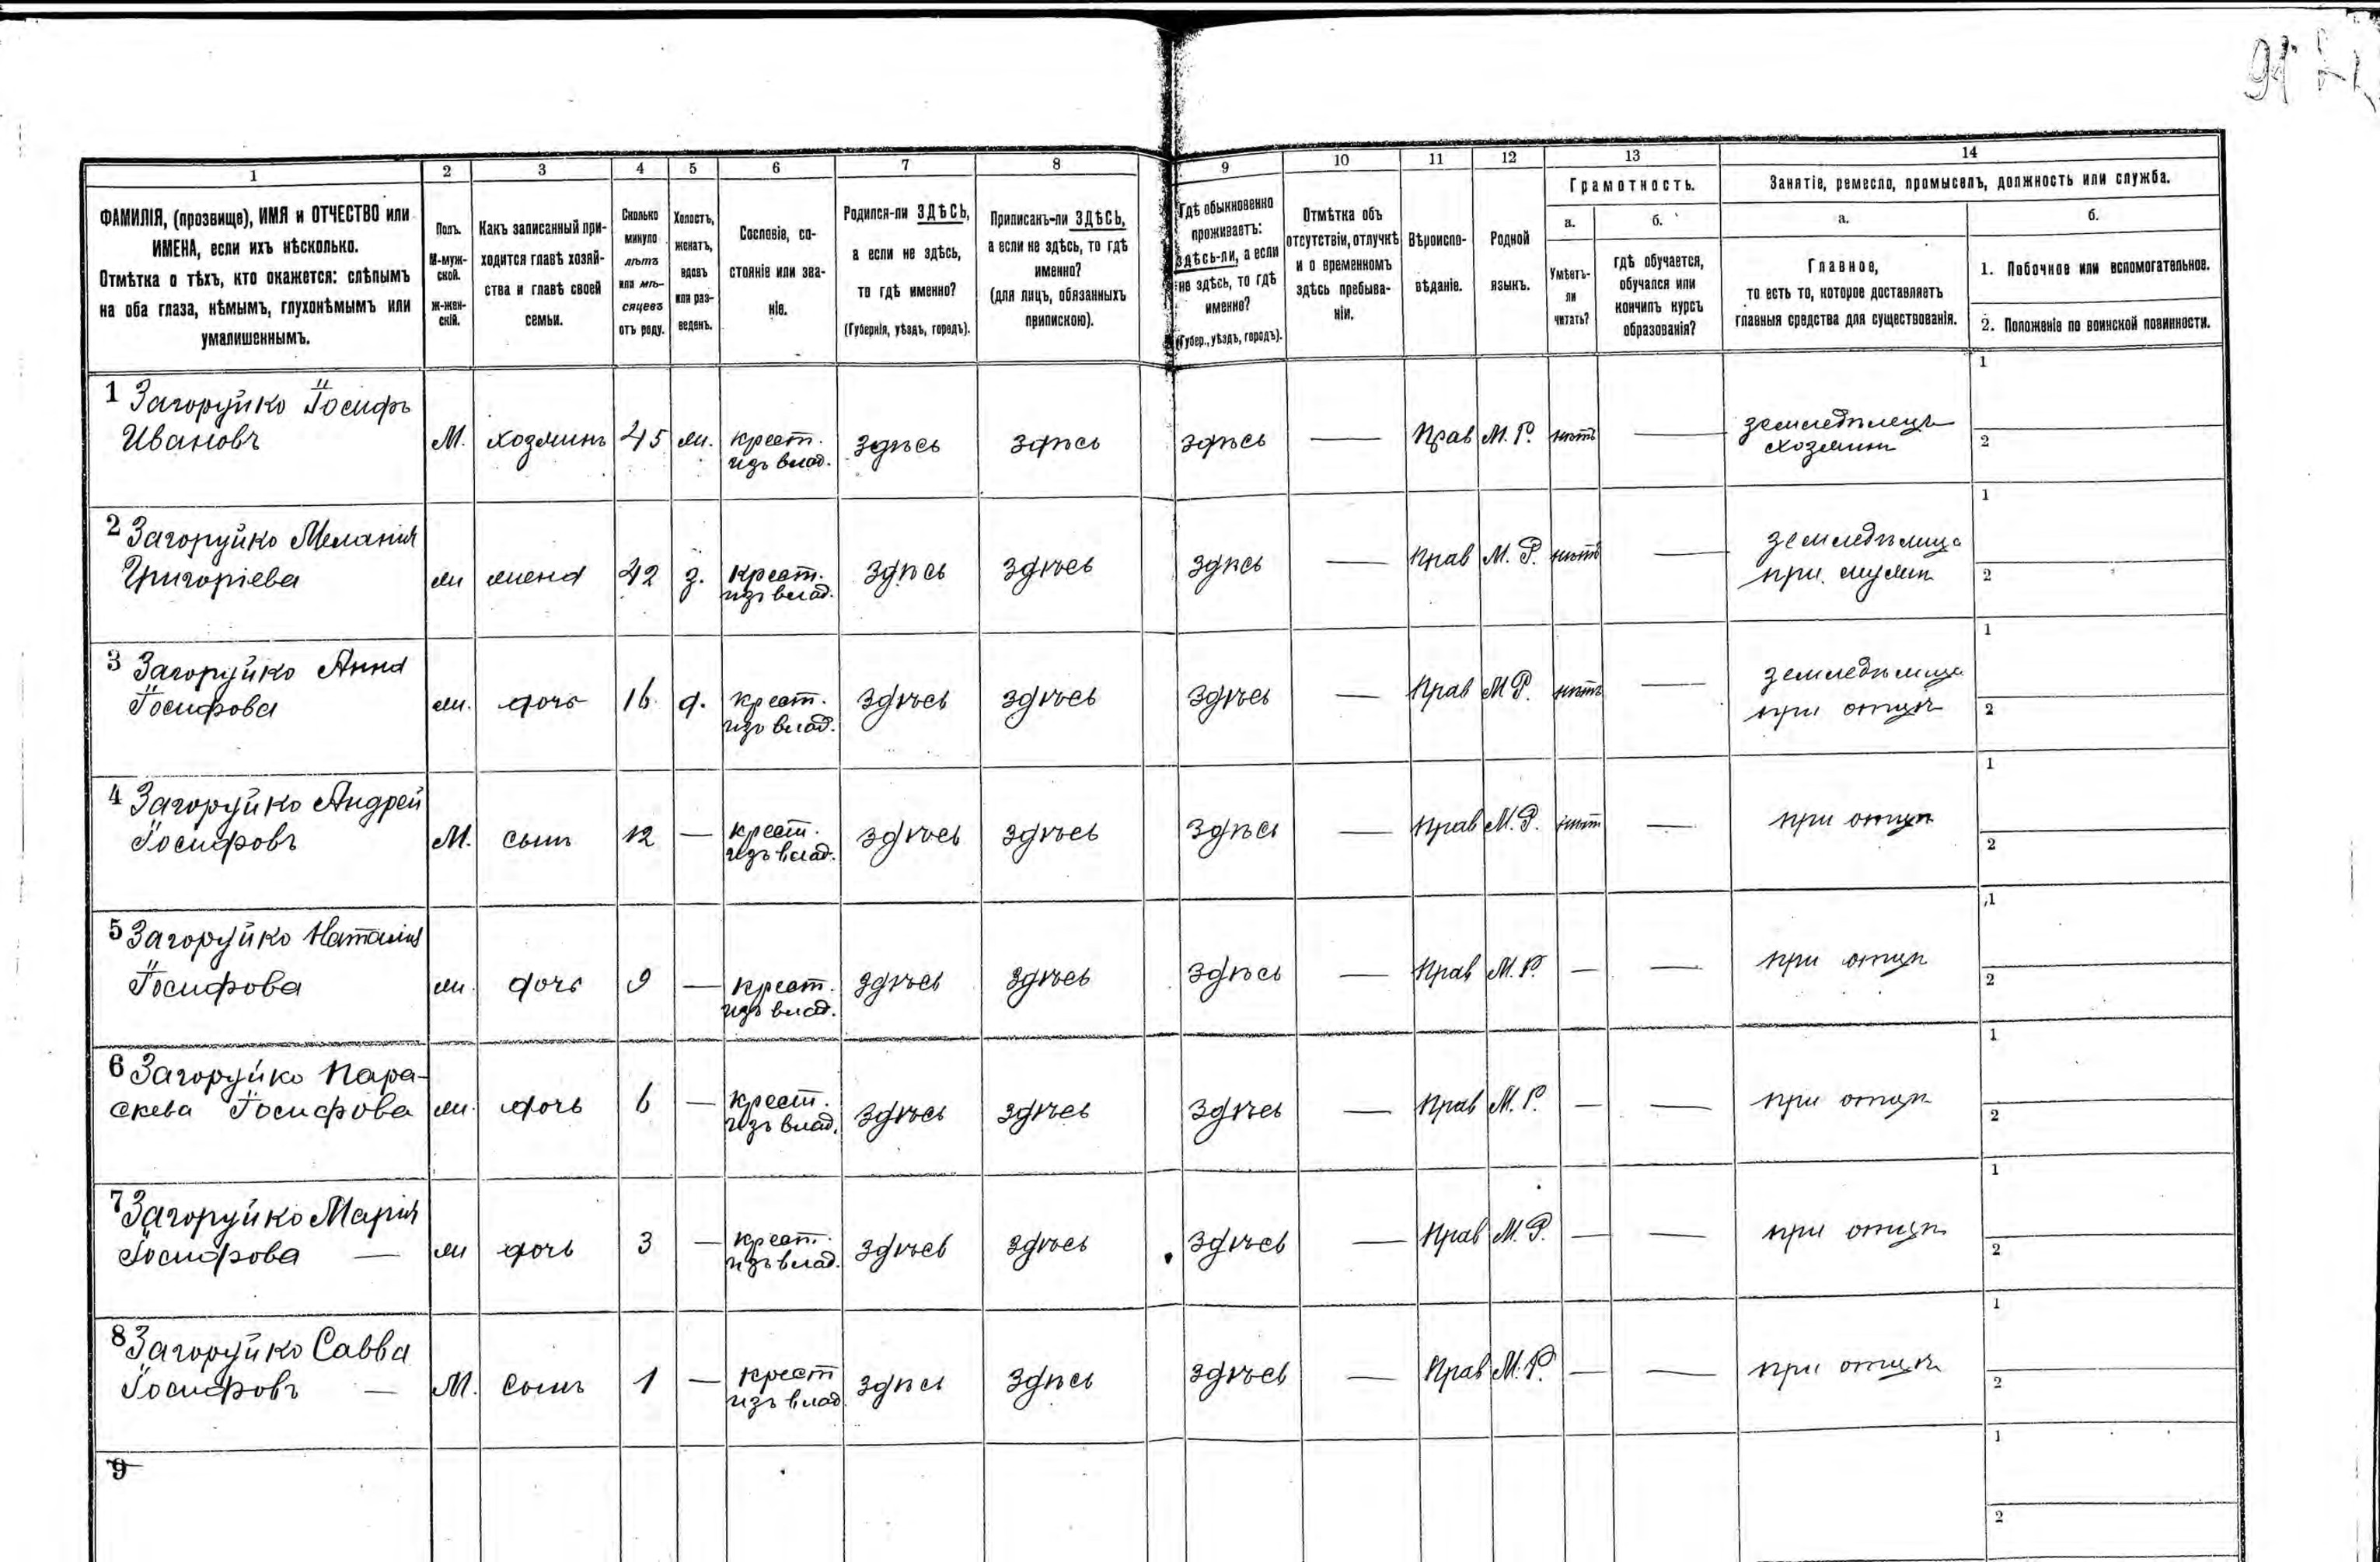 1
2
3
4
5
6
7
8
9
10
11
12
13
14
ФАМИЛІЯ, (прозвище), ИМЯ и ОТЧЕСТВО или
ИМЕНА, если ихъ нѣсколько.
Отмѣтка о тѣхъ, кто окажется: слѣпымъ
на оба глаза, нѣмымъ, глухонѣмымъ или
умалишеннымъ.
Полъ.
М-муж-
ской.
ж-жен-
скій.
Какъ записанный при-
ходится главѣ хозяй-
ства и главѣ своей
семьи.
Сколько
минуло
лѣтъ
или мѣ-
сяцевъ
отъ роду.
Холостъ,
женатъ,
вдовъ
или раз-
веденъ.
Сословіе, со-
стояніе или зва-
ніе.
Родился-ли ЗДѢСЬ,
а если не здѣсь,
то гдѣ именно?
(Губернія, уѣздъ, городъ).
Приписанъ-ли ЗДѢСЬ,
а если не здѣсь, то гдѣ
именно?
(для лицъ, обязанныхъ
припискою).
Гдѣ обыкновенно
проживаетъ:
здѣсь-ли, а если
не здѣсь, то гдѣ
именно?
(Губер., уѣздъ, городъ).
Отмѣтка объ
отсутствіи, отлучкѣ
и о временномъ
здѣсь пребыва-
ніи.
Вѣроиспо-
вѣданіе.
Родной
языкъ.
Грамотность.
а.
Умѣетъ-
ли
читать?
б.
гдѣ обучается,
обучался или
кончилъ курсъ
образованія?
Занятіе, ремесло, промыселъ, должность или служба.
а.
Главное,
то есть то, которое доставляетъ
главныя средства для существованія.
б.
1. Побочное или вспомогательное.
2. Положеніе по воинской повинности.
1 Загоруйко Іосифъ
Ивановъ
М. хозяинъ 45 ж. крест.
изъ влад.
здѣсь здѣсь здѣсь — Прав М. Р. нѣтъ — земледѣлецъ
хозяинъ
1
2
2 Загоруйко Меланія
Григоріева
ж жена 42 з. крест.
изъ влад.
здѣсь здѣсь здѣсь — Прав М. Р. нѣтъ — земледѣлица
при мужѣ
1
2
3 Загоруйко Анна
Іосифова
ж. дочь 16 д. крест.
изъ влад.
здѣсь здѣсь здѣсь — Прав М Р. нѣтъ — земледѣлица
при отцѣ
1
2
4 Загоруйко Андрей
Іосифовъ
М. сынъ 12 — крест.
изъ влад.
здѣсь здѣсь здѣсь — Прав М. Р. нѣтъ — при отцѣ
1
2
5 Загоруйко Наталія
Іосифова
ж. дочь 9 — крест.
изъ влад.
здѣсь здѣсь здѣсь — Прав М. Р. — — при отцѣ
1
2
6 Загоруйко Пара-
скева Іосифова
ж. дочь 6 — крест.
изъ влад.
здѣсь здѣсь здѣсь — Прав М. Р. — — при отцѣ
1
2
7 Загоруйко Марія
Іосифова —
ж дочь 3 — крест.
изъ влад.
здѣсь здѣсь здѣсь — Прав М. Р. — — при отцѣ
1
2
8 Загоруйко Савва
Іосифовъ —
М. сынъ 1 — крест
изъ влад.
здѣсь здѣсь здѣсь — Прав М. Р. — — при отцѣ
1
2
9
1
2